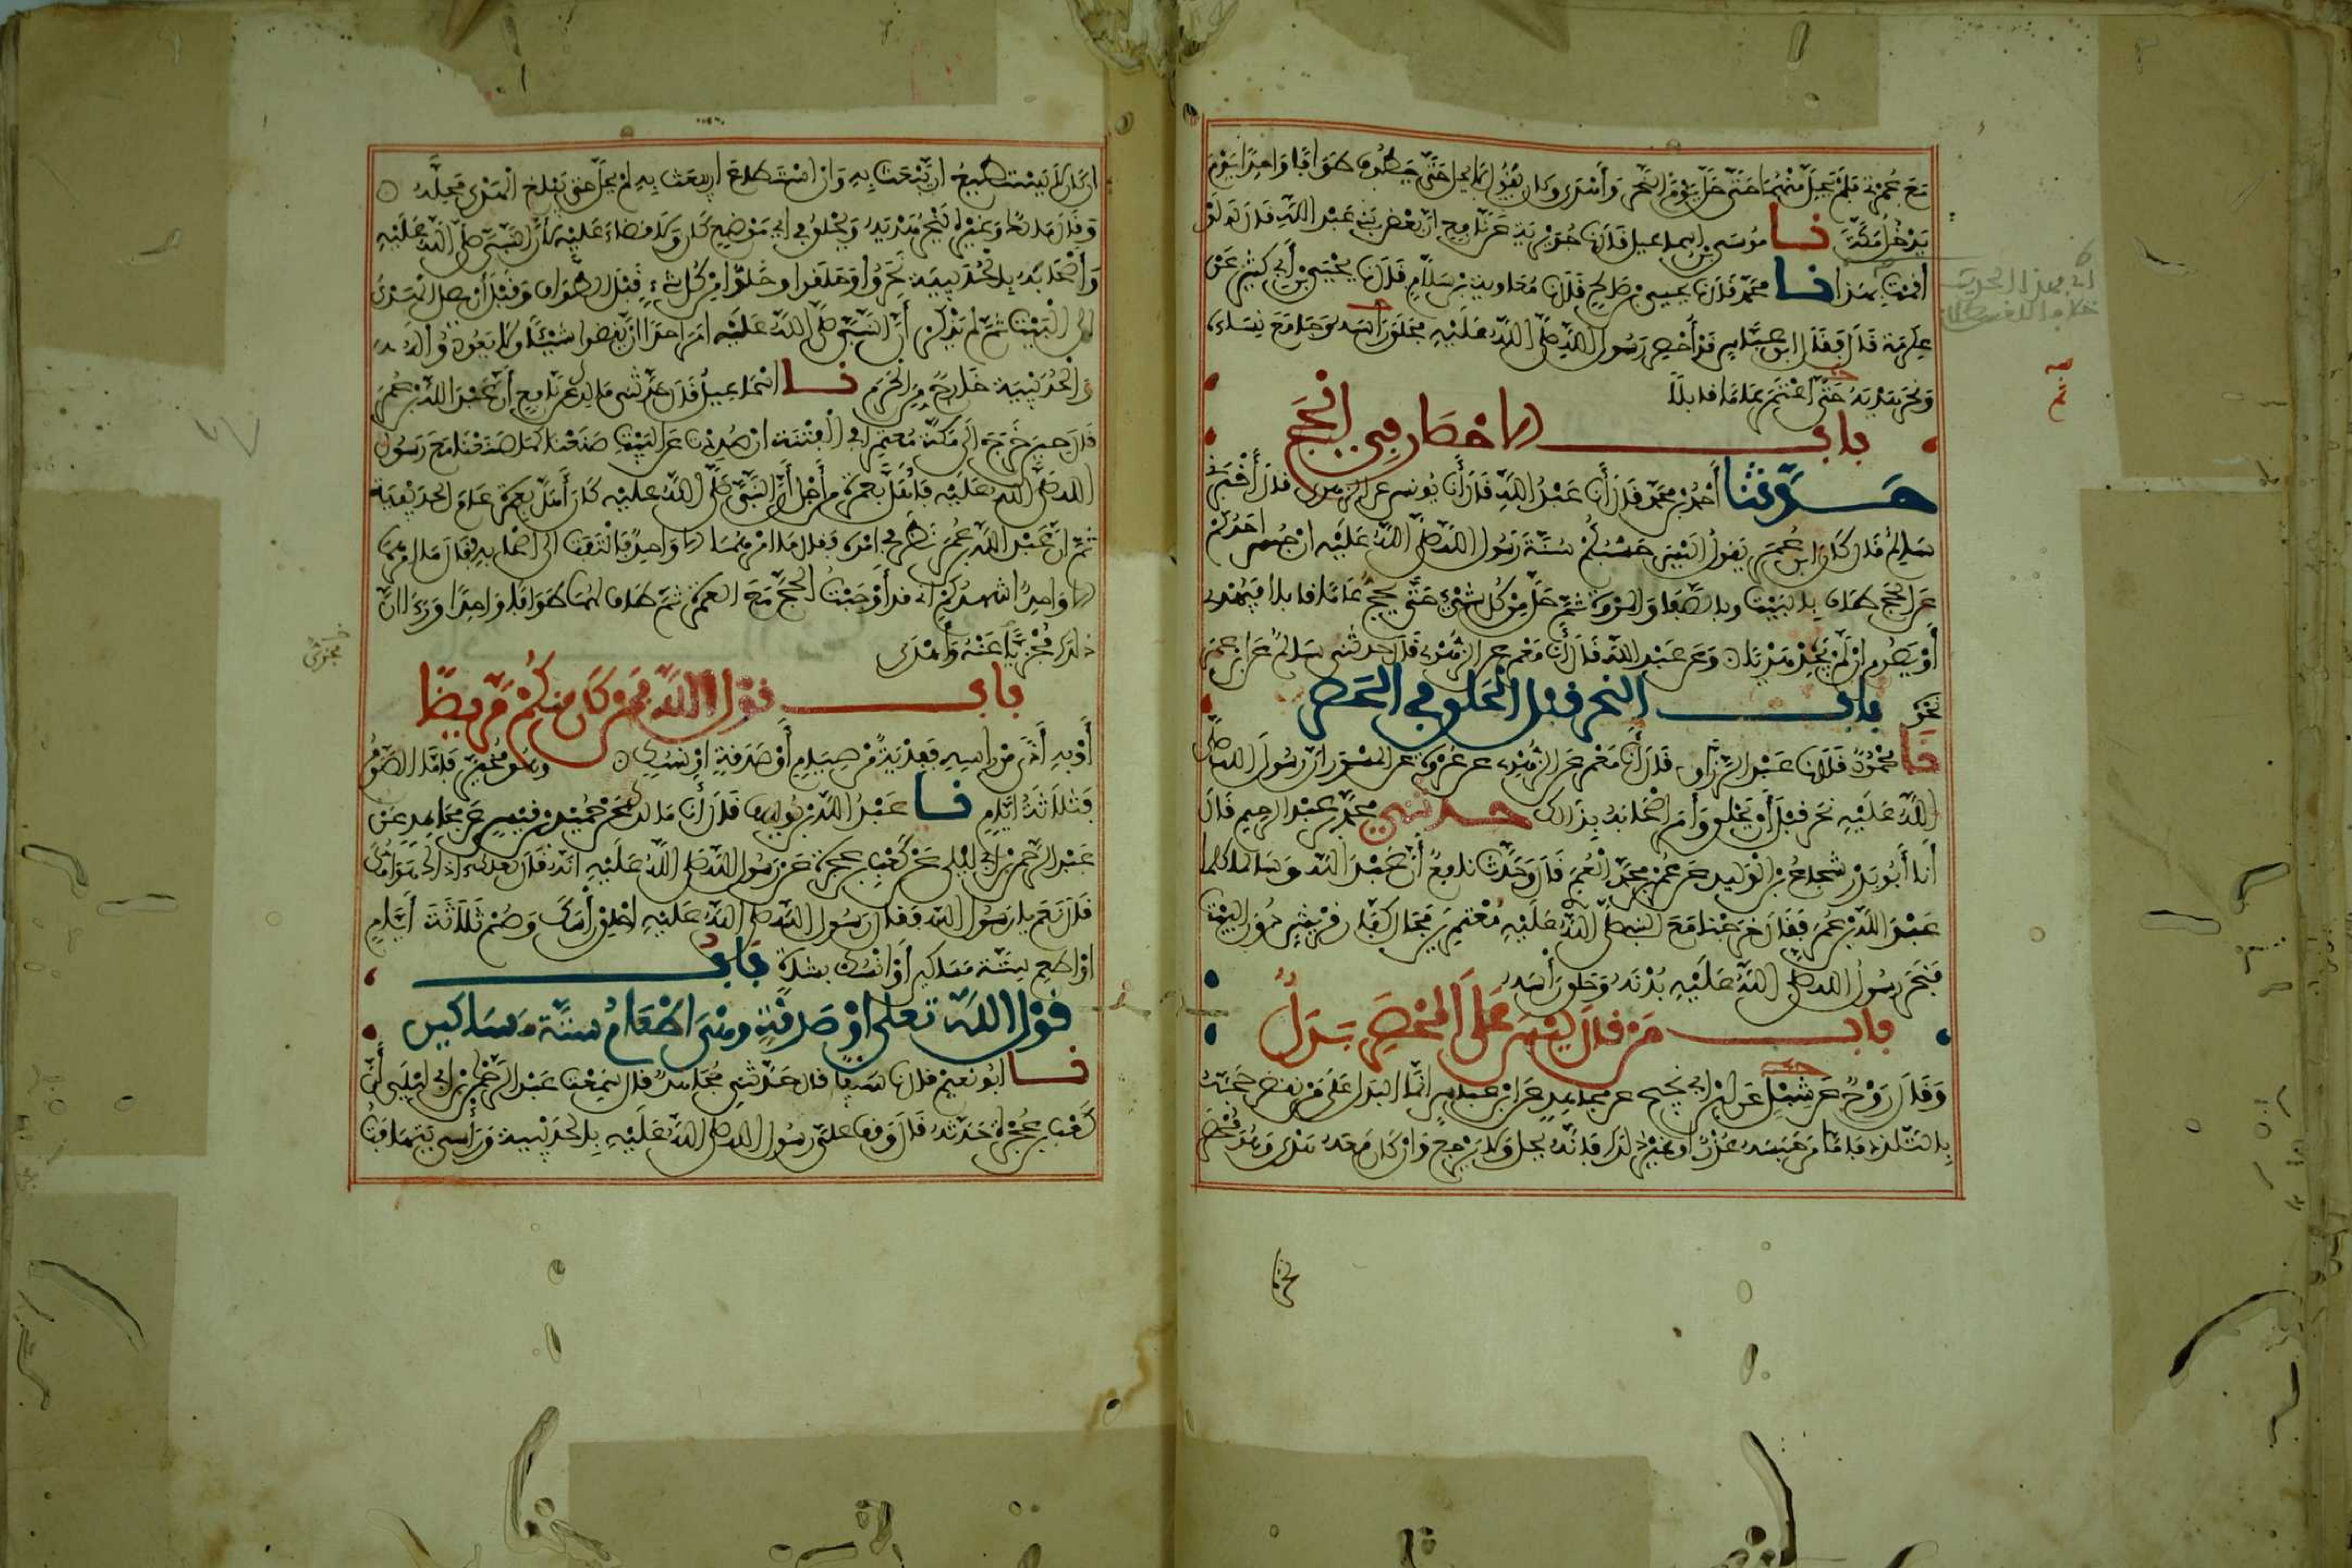 مع عمرته فلم يحل منهما حتى حل يوم النحر وأهدى وكان يقول لا يحل حتى يطوف طوافا واحدا يوم
يدخل مكة نا موسى بن اسماعيل قال نا جويرية عن نافع ان بعض بني عبد الله قال له لو
اقمت بهذا نا محمد قال نا يحيى بن صالح قال نا معاوية بن سلام قال نا يحيى بن أبي كثير عن
عكرمة قال فقال ابن عباس قد أحصر رسول الله صلى الله عليه فحلق رأسه وجامع نساءه
ونحر هديه حتى اعتمر عاما قابلا
باب الاحصار في الحج
حدثنا أحمد بن محمد قال أنا عبد الله قال أنا يونس عن الزهري قال أخبرني
سالم قال كان ابن عمر يقول أليس حسبكم سنة رسول الله صلى الله عليه ان حبس احدكم
عن الحج طاف بالبيت وبالصفا والمروة ثم حل من كل شيء حتى يحج عاما قابلا فيهدي
أو يصوم ان لم يجد هديا وعن عبد الله قال أنا معمر عن الزهري قال حدثني سالم عن ابن عمر
نحوه باب النحر قبل الحلق في الحصر
نا محمود قال نا عبد الرزاق قال أنا معمر عن الزهري عن عروة عن المسور ان رسول الله صلى
الله عليه نحر قبل أن يحلق وأمر أصحابه بذلك حدثني محمد بن عبد الرحيم قال
أنا أبو بدر شجاع بن الوليد عن عمر بن محمد العمري قال وحدث نافع أن عبد الله وسالما كلما
عبد الله بن عمر فقال خرجنا مع النبي صلى الله عليه معتمرين فحال كفار قريش دون البيت
فنحر رسول الله صلى الله عليه بدنه وحلق رأسه
باب من قال ليس على المحصر بدل
وقال روح عن شبل عن ابن ابي نجيح عن مجاهد عن ابن عباس انما البدل على من نقض حجه
بالتلذذ فاما من حبسه عذر أو غير ذلك فانه يحل ولا يرجع وان كان معه هدي وهو محصر
نحرها
ان كان لم يستطيع ان يبعث به وان استطاع ان يبعث به لم يحل حتى يبلغ الهدي محله
وقال مالك وغيره ينحر هديه ويحلق في اي موضع كان ولا قضاء عليه لان النبي صلى الله عليه
وأصحابه بالحديبية نحروا وحلقوا وحلوا من كل شيء قبل الطواف وقبل أن يصل الهدي
الى البيت ثم لم يذكر أن النبي صلى الله عليه امر احدا ان يقضوا شيئا ولا يعودوا له
والحديبية خارج من الحرم نا اسماعيل قال حدثني مالك عن نافع أن عبد الله بن عمر
قال حين خرج الى مكة معتمرا في الفتنة ان صددت عن البيت صنعنا كما صنعنا مع رسول
الله صلى الله عليه فاهل بعمرة من أجل أن النبي صلى الله عليه كان أهل بعمرة عام الحديبية
ثم ان عبد الله بن عمر نظر في امره فقال ما امرهما الا واحد فالتفت الى اصحابه فقال ما امرهما
الا واحد اشهدكم اني قد أوجبت الحج مع العمرة ثم طاف لهما طوافا واحدا ورءا ان
ذلك مجزيا عنه وأهدى
باب قول الله فمن كان منكم مريضا
أو به أذى من رأسه ففدية من صيام أو صدقة أو نسك وهو مخير فاما الصوم
فثلاثة أيام نا عبد الله بن يوسف قال أنا مالك عن حميد بن قيس عن مجاهد عن
عبد الرحمن بن ابي ليلى عن كعب بن عجرة عن رسول الله صلى الله عليه انه قال لعلك اذاك هوامك
قال نعم يا رسول الله فقال رسول الله صلى الله عليه احلق رأسك وصم ثلاثة أيام
او اطعم ستة مساكين أو انسك بشاة باب
قول الله تعلى او صدقة وهي اطعام ستة مساكين
نا ابو نعيم قال نا سيف قال حدثني مجاهد قال سمعت عبد الرحمن بن ابي ليلى أن
كعب بن عجرة حدثه قال وقف علي رسول الله صلى الله عليه بالحديبية ورأسي يتهافت